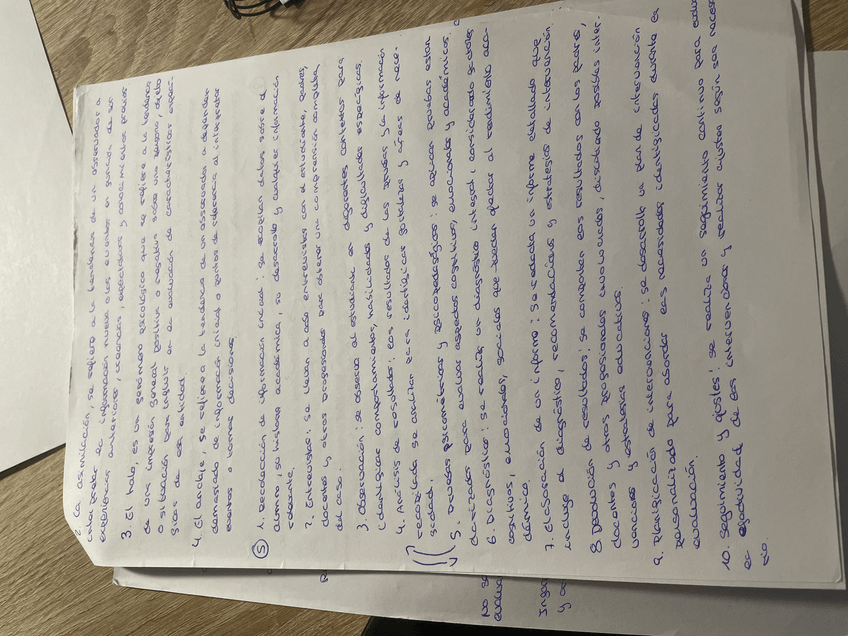 2. La asimilación, se refiere a la tendencia de un observador a
interpretar la información nueva o los eventos en función de sus
experiencias anteriores, creencias, expectativas y conocimientos previos.
3. El halo, es un fenómeno psicológico que se refiere a la tendencia
de una impresión general positiva o negativa sobre una persona, objeto
o situación para influir en la evaluación de características especí-
ficas de esa entidad.
4. El anclaje, se refiere a la tendencia de un observador a depender
demasiado de información inicial o puntos de referencia al interpretar
eventos o tomar decisiones.
5 1. Recolección de información inicial: se recopilan datos sobre el
alumno, su historia académica, su desarrollo y cualquier información
relevante.
2. Entrevistas: se llevan a cabo entrevistas con el estudiante, padres,
docentes y otros profesionales para obtener una comprensión completa
del caso.
3. Observación: se observa al estudiante en diferentes contextos para
identificar comportamientos, habilidades y dificultades específicas.
4. Análisis de resultados: los resultados de las pruebas y la información
recopilada se analizan para identificar fortalezas y áreas de nece-
sidad.
5. Pruebas psicométricas y psicopedagógicas: se aplican pruebas estan
darizadas para evaluar aspectos cognitivos, emocionales y académicos.
6. Diagnóstico: se realiza un diagnóstico integral, considerando factores
cognitivos, emocionales, sociales que puedan afectar al rendimiento aca-
démico.
7. Elaboración de un informe: se redacta un informe detallado que
incluye el diagnóstico, recomendaciones y estrategias de intervención.
8. Devolución de resultados: se comparten los resultados con los padres,
docentes y otros profesionales involucrados, discutiendo posibles inter-
venciones y estrategias educativas.
9. Planificación de intervenciones: se desarrolla un plan de intervención
personalizado para abordar las necesidades identificadas durante la
evaluación.
10. Seguimiento y ajustes: se realiza un seguimiento continuo para
la efectividad de las intervenciones y realizar ajustes según sea
rio.
No se
evalua
y